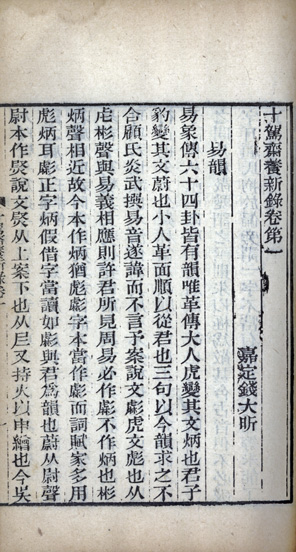 十駕齋養新錄卷第一
嘉定錢大昕
易韻
易象傳六十四卦皆有韻唯革傳大人虎變其文炳也君子
豹變其文蔚也小人革面順以從君也三句以今韻求之不
合顧氏炎武撰易音遂諱而不言予案說文虨虎文彪也从
虍彬聲與易義相應則許君所見周易必作虨不作炳也彬
炳聲相近故今本作炳猶彪虨字本當作虨而詞賦家多用
彪炳耳虨正字炳假借字當讀如虨與君為韻也蔚从尉聲
尉本作㷉說文㷉从上案下也从𡰥又持火以申繒也今吳